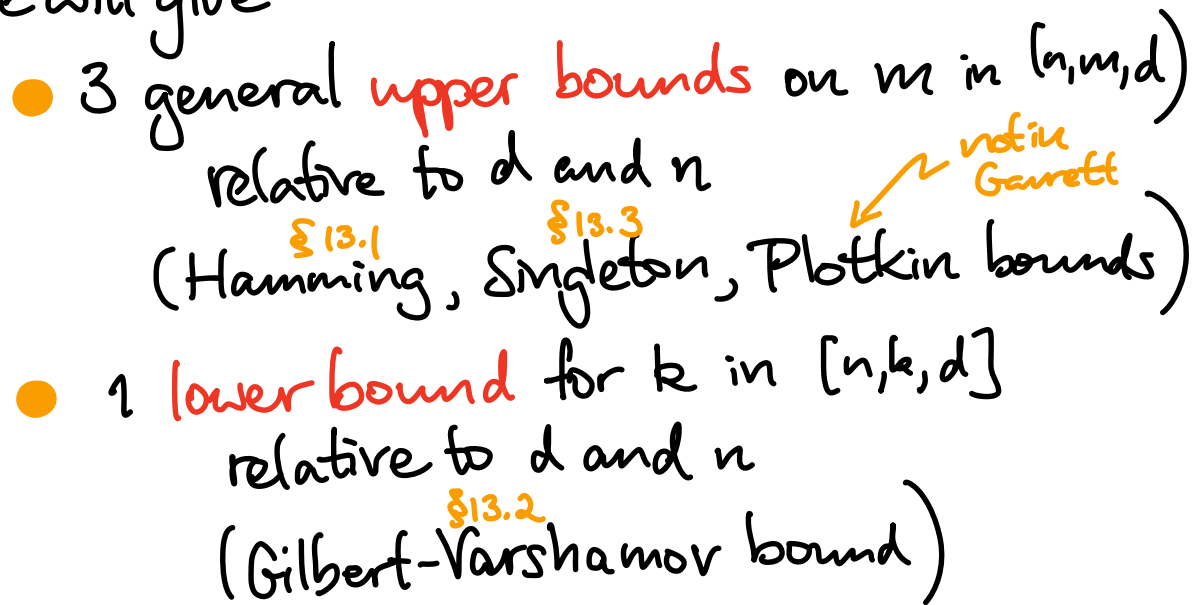 we will give
● 3 general upper bounds on m in (n,m,d)
relative to d and n
not in
Garrett
§13.1 §13.3
(Hamming, Singleton, Plotkin bounds)
● 1 lower bound for k in [n,k,d]
relative to d and n
§13.2
(Gilbert-Varshamov bound)